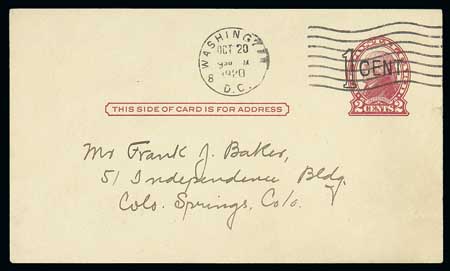 WASHINGTON
OCT 20
1920
D.C.
8
1 CENT
2 CENTS 2
THIS SIDE OF CARD IS FOR ADDRESS
Mr Frank J. Baker,
51 Independence Bldg.
Colo. Springs, Colo.